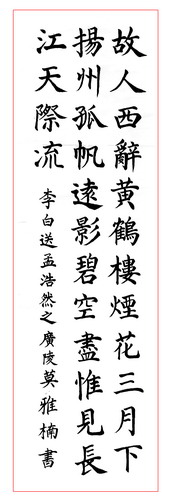 故人西辭黃鶴樓煙花三月下
揚州孤帆遠影碧空盡惟見長
江天際流
李白送孟浩然之廣陵莫雅楠書